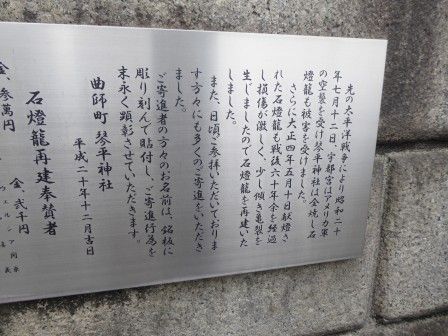 先の太平洋戦争により昭和二十
年七月十二日、宇都宮はアメリカ軍
の空襲を受け琴平神社は全焼し石
燈籠も被害を受けました。
さらに大正四年五月十日献燈さ
れた石燈籠も戦後六十年余を経過
し損傷が激しく、少し傾き亀裂を
生じましたので石燈籠を再建いた
しました。
また、日頃ご参拝いただいておりま
す方々にも多くのご寄進をいただき
ました。
ご寄進者の方々のお名前は、銘板に
彫り刻んで貼付し、ご寄進行為を
末永く顕彰させていただきます。
平成二十年十二月吉日
曲師町 琴平神社
石燈籠再建奉賛者
金、弐千円
金、参萬円